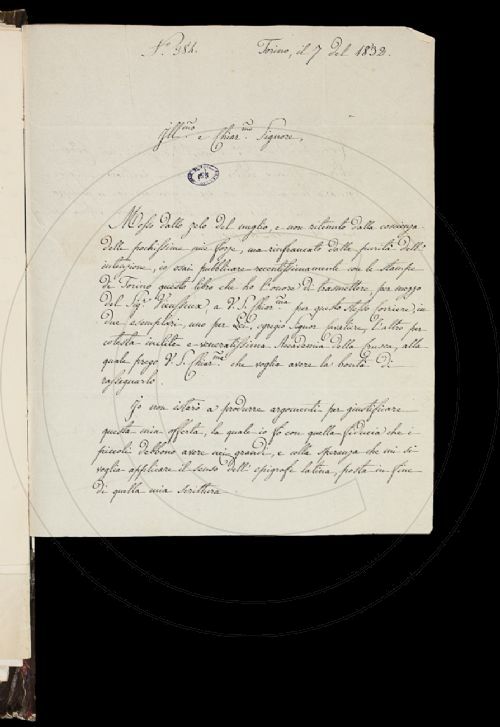 N.° 384. Torino, il 7 del 1832.
Ill.mo e Chiar.mo Signore,
Mosso dallo zelo del meglio, e non ritenuto dalla coscienza
delle pochissime mie forze, ma rinfrancato dalla purità dell'
intenzione, io osai pubblicare recentissimamente con le stampe
di Torino questo libro che ho l'onore di trasmettere, per mezzo
del Sig.r Vieusseux, a V. S. Chiar.ma per questo stesso corriere, in
due esemplari, uno per Lei, egregio Signor, l'altro per
cotesta inclita e veneratissima Accademia della Crusca, alla
quale prego V. S. Chiar.ma che voglia avere la bontà di
rassegnarlo.
Io non istarò a produrre argomenti per giustificare
questa mia offerta, la quale io fo con quella fiducia che i
piccoli debbono avere nei grandi, e colla speranza che mi si
voglia applicare il senso dell'epigrafe latina, posta in fine
di quella mia scrittura.